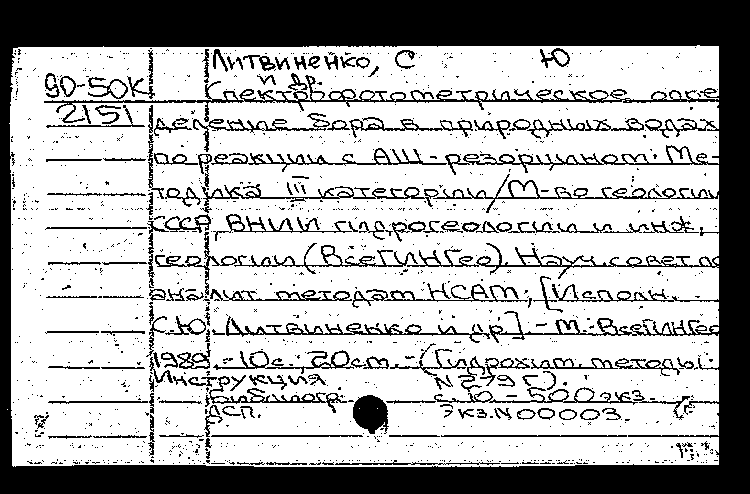 Литвиненко, С Ю
90-50К и др.
Спектрофотометрическое опре
2151
деление бора в природных водах
по реакции с АШ-резорцином: Ме-
тодика III категории/М-во геологии
СССР, ВНИИ гидрогеологии и инж.
геологии (ВсеГИНГео). Науч. совет по
аналит методам НСАМ; [Исполн.
С.Ю. Литвиненко и др]. - М.: ВсеГИНГео
1989. - 10с.; 20см. - (Гидрохим. методы:
Инструкция N 279 Г).
Библиогр. с. 10 - 500 экз.
ДСП. Экз. N 00003.